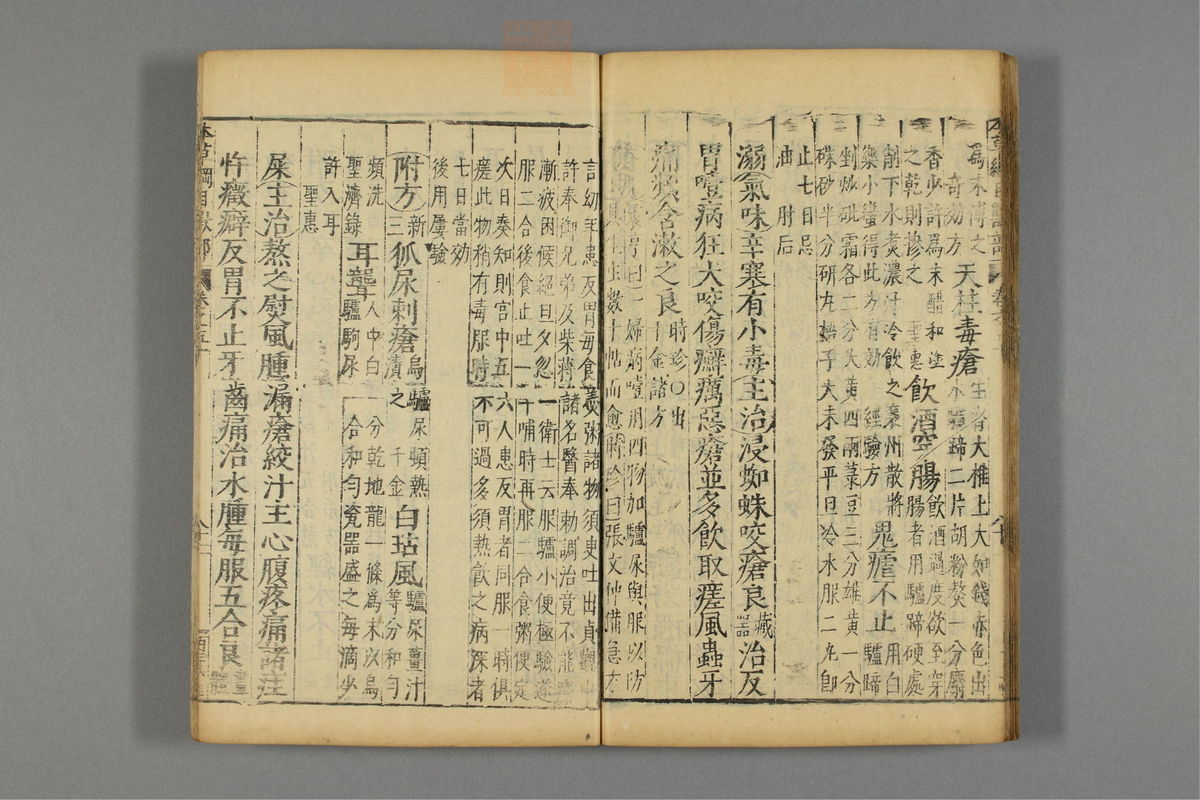 爲末傅之
奇効方 天柱毒瘡 生脊大椎上大如錢赤色出
水驢蹄二片胡粉熬一分麝
香少許爲末醋和塗
之乾則摻之 聖惠 飲酒穿腸 飲酒過度欲至穿
腸者用驢蹄硬處
削下水煮濃汁冷飲之襄州散將
樂小蠻得此方有効 經驗方 鬼瘧不止 用白
驢蹄
剉炒砒霜各二分大黃四兩菉豆三分雄黃一分
硃砂半分研丸梧子大未發平旦冷水服二丸即
止七日忌
油 肘后
溺氣味辛寒有小毒主治浸蜘蛛咬瘡良藏器治反
胃噎病狂犬咬傷癬癘惡瘡並多飲取瘥風蟲牙
痛頻含漱之良 時珍○出
千金諸方
婦病噎用四物加驢尿與服以防
數十帖而愈時珍曰張文仲備急方
言幼年患反胃每食羹粥諸物須臾吐出貞觀中
許奉御兄弟及柴蔣諸名醫奉勅調治竟不能療
漸疲困候絕旦夕忽一衛士云服驢小便極驗遂
服二合後食止吐一半哺時再服二合食粥便定
次日奏知則宮中五六人患反胃者同服一時俱
瘥此物稍有毒服時不可過多須熱飲之病深者
七日當効
後用屢驗
附方新三 狐尿刺瘡 烏驢尿頓熱
漬之 千金 白㾑風 驢尿薑汁
等分和勻
頻洗
聖濟錄 耳聾 人中白一分乾地龍一條爲末以烏
驢駒尿一合和勻瓷器盛之每滴少
許入耳
聖惠
屎主治熬之熨風腫漏瘡絞汁主心腹疼痛諸疰
忤癥癖反胃不止牙齒痛治水腫每服五合良